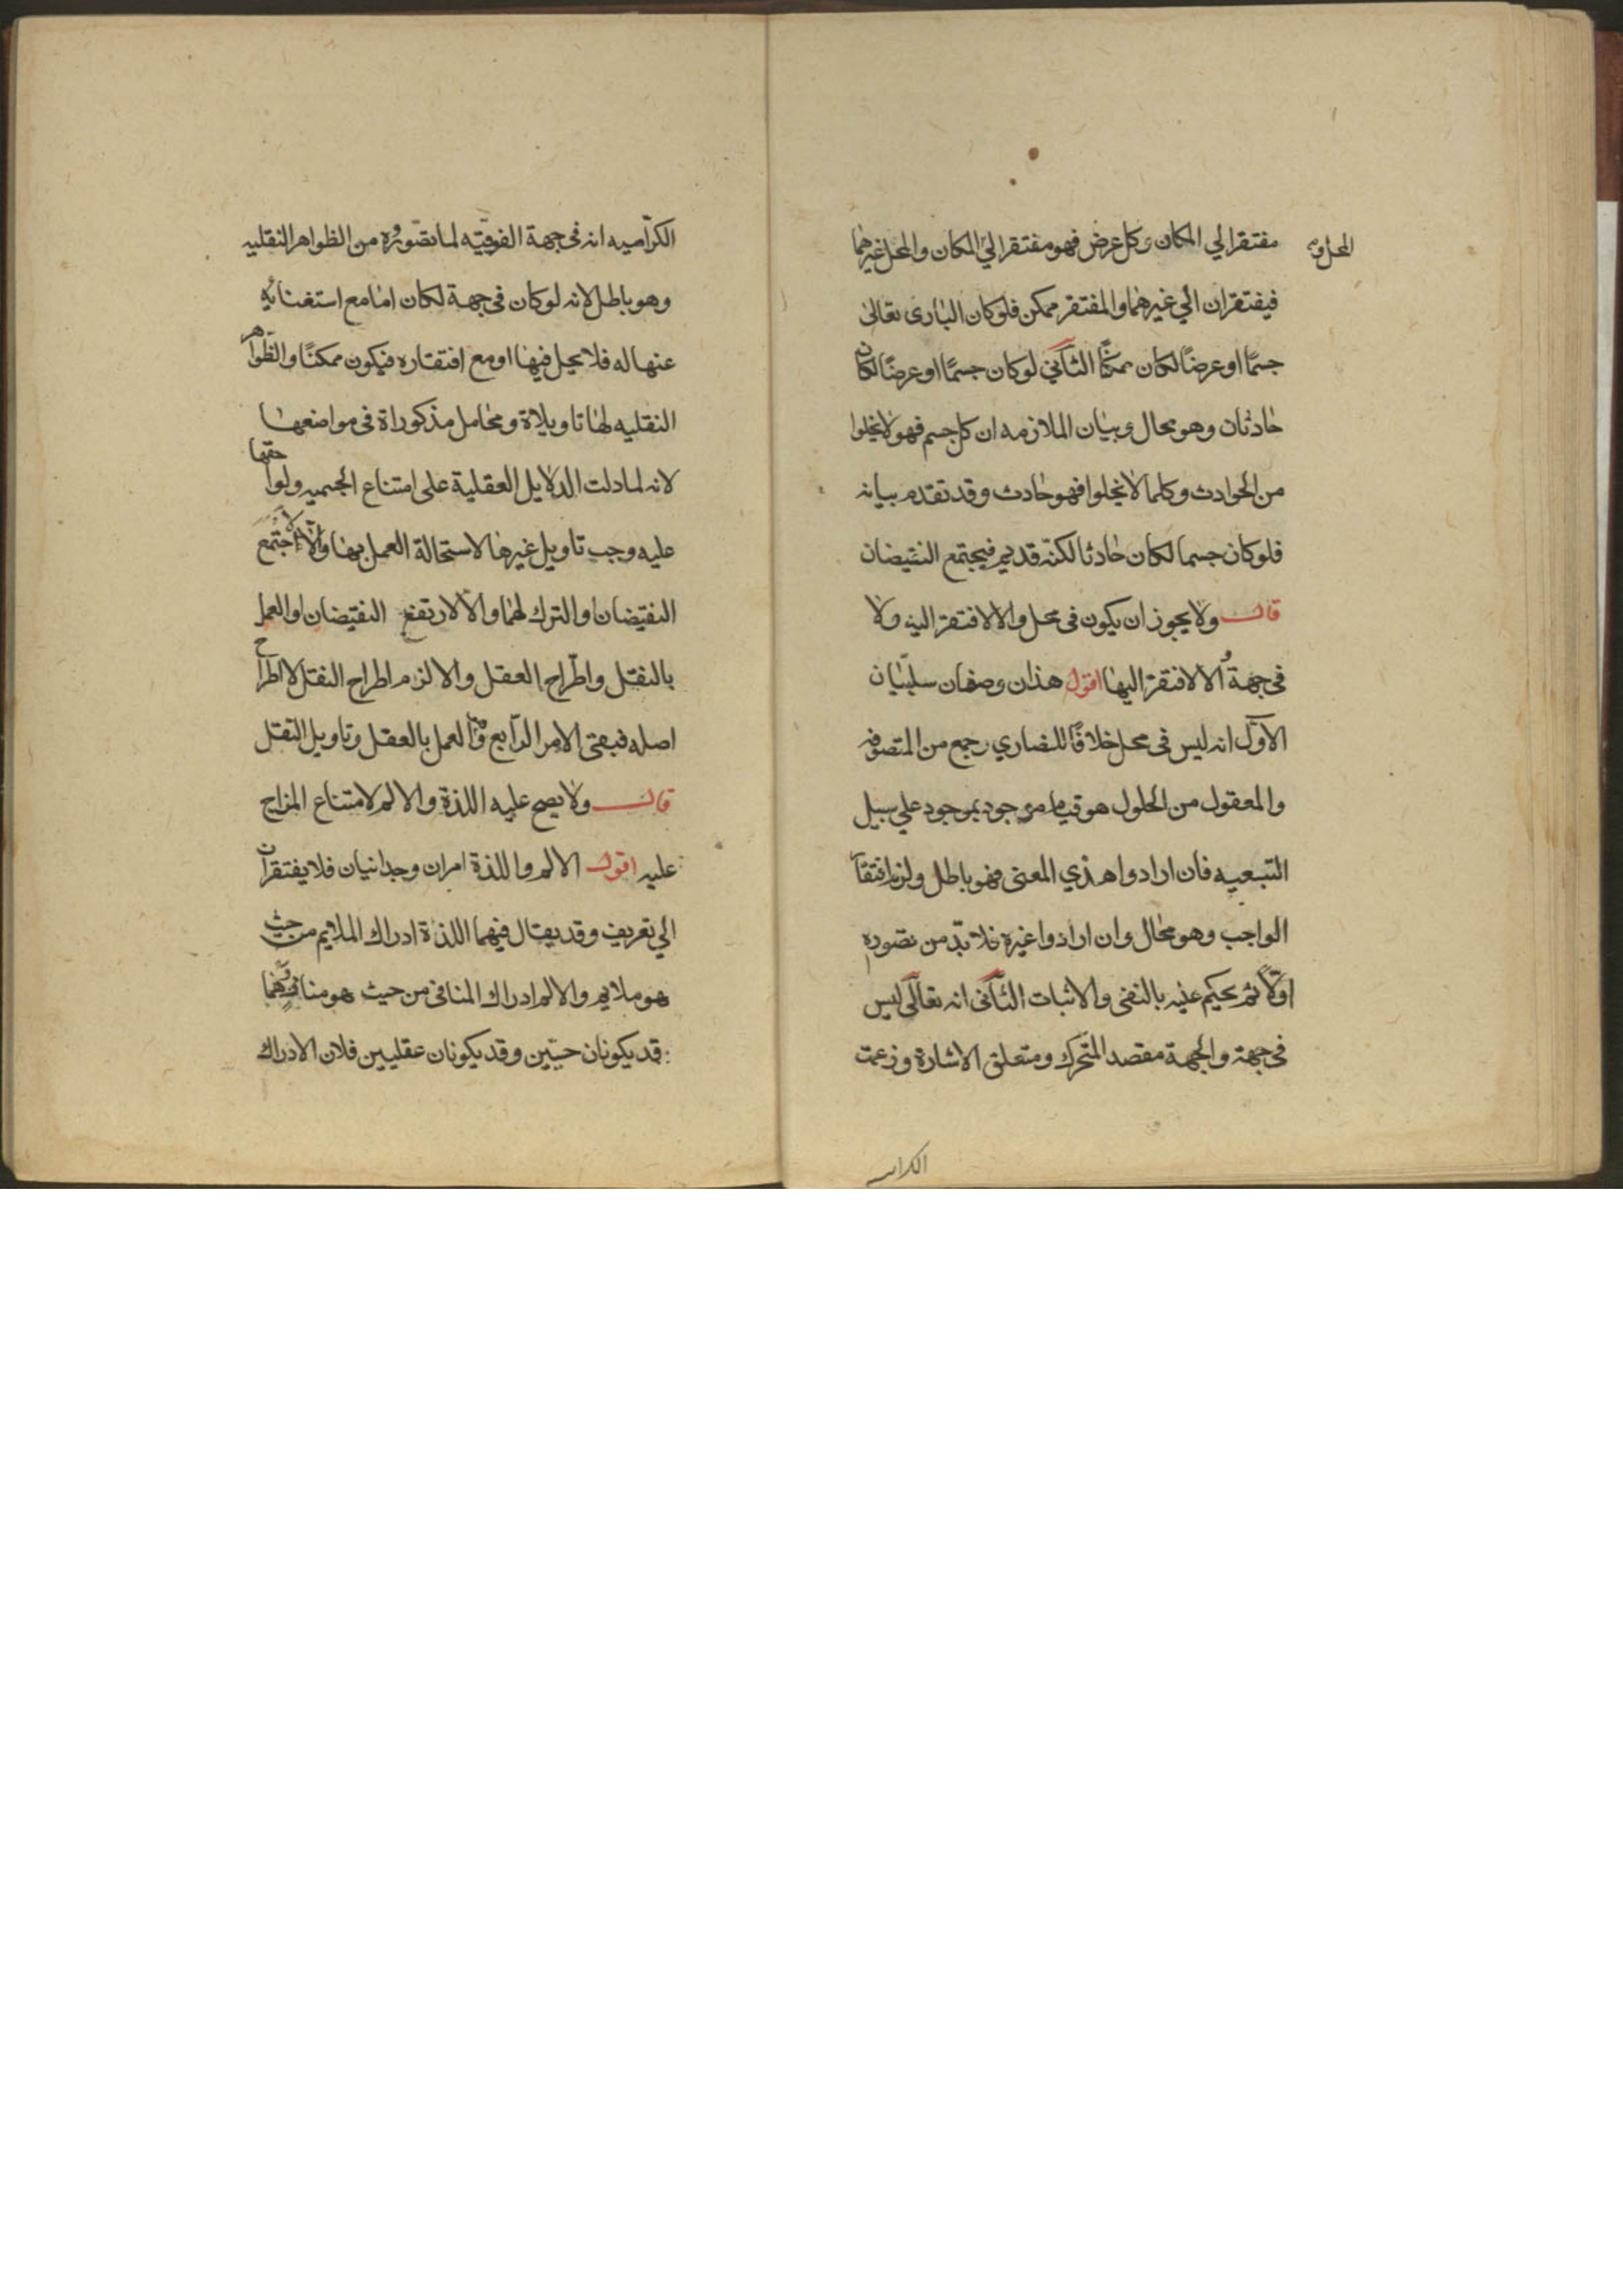 مفتقرا لي المكان وكل عرض فهو مفتقر الي المكان والمحل غيرهما
المحل و
فيفتقران الي غيرهما والمفتقر ممكن فلوكان الباري تعالى
جسمًا او عرضًا لكان ممكنًا الثاني لوكان جسمًا او عرضًا لكان
حادثان وهو محال وبيان الملازمه ان كل جسم فهو لا يخلوا
من الحوادث وكلما لا يخلوا فهو حادث وقد تقدم بيانه
فلوكان جسما لكان حادثا لكنّه قديم فيجتمع النقيضان
قال ولا يجوز ان يكون في محل والا لافتقر اليه ولا
في جهة والا لافتقر اليها اقول هذان وصفان سلبيّان
الاوّل انه ليس في محل خلافًا للنصاري وجمع من المتصوفه
والمعقول من الحلول هو قيام موجود بموجود علي سبيل
التبعيه فان ارادوا هذي المعنى فهو باطل ولزم افتقا
الواجب وهو محال وان ارادوا غيره فلا بدّ من تصوره
اوّلًا ثم يحكم عليه بالنفي والاثبات الثاني انه تعالى ليس
في جهة والجهة مقصد المتحرك ومتعلق الاشارة وزعمت
الكرامـ
الكرّاميه انه في جهة الفوقيّه لما تصوروه من الظواهر النقليه
وهو باطل لانه لوكان في جهة لكان اما مع استغنائه
عنها له فلا يحل فيها او مع افتقاره فيكون ممكنًا والظواهر
النقليه لها تاويلاة ومحامل مذكوراة في مواضعها
لانه لما دلت الدلايل العقلية على امتناع الجسميه ولواحقها
عليه وجب تاويل غيرها لاستحالة العمل بهما والا لاجتمع
النقيضان او الترك لهما والا لارتفع النقيضان او العمل
بالنقل واطّراح العقل والا لزم اطراح النقل لاطراح
اصله فبقي الامر الرابع وهو العمل بالعقل وتاويل النقل
قال ولا يصح عليه اللذة والالم لامتناع المزاج
عليه اقول الالم واللذة امران وجدانيان فلا يفتقران
الي تعريف وقد يقال فيهما اللذة ادراك الملايم من حيث
هو ملايم والالم ادراك المنافي من حيث هو مناف وهما
قد يكونان حسّيين وقد يكونان عقليين فلان الادراك